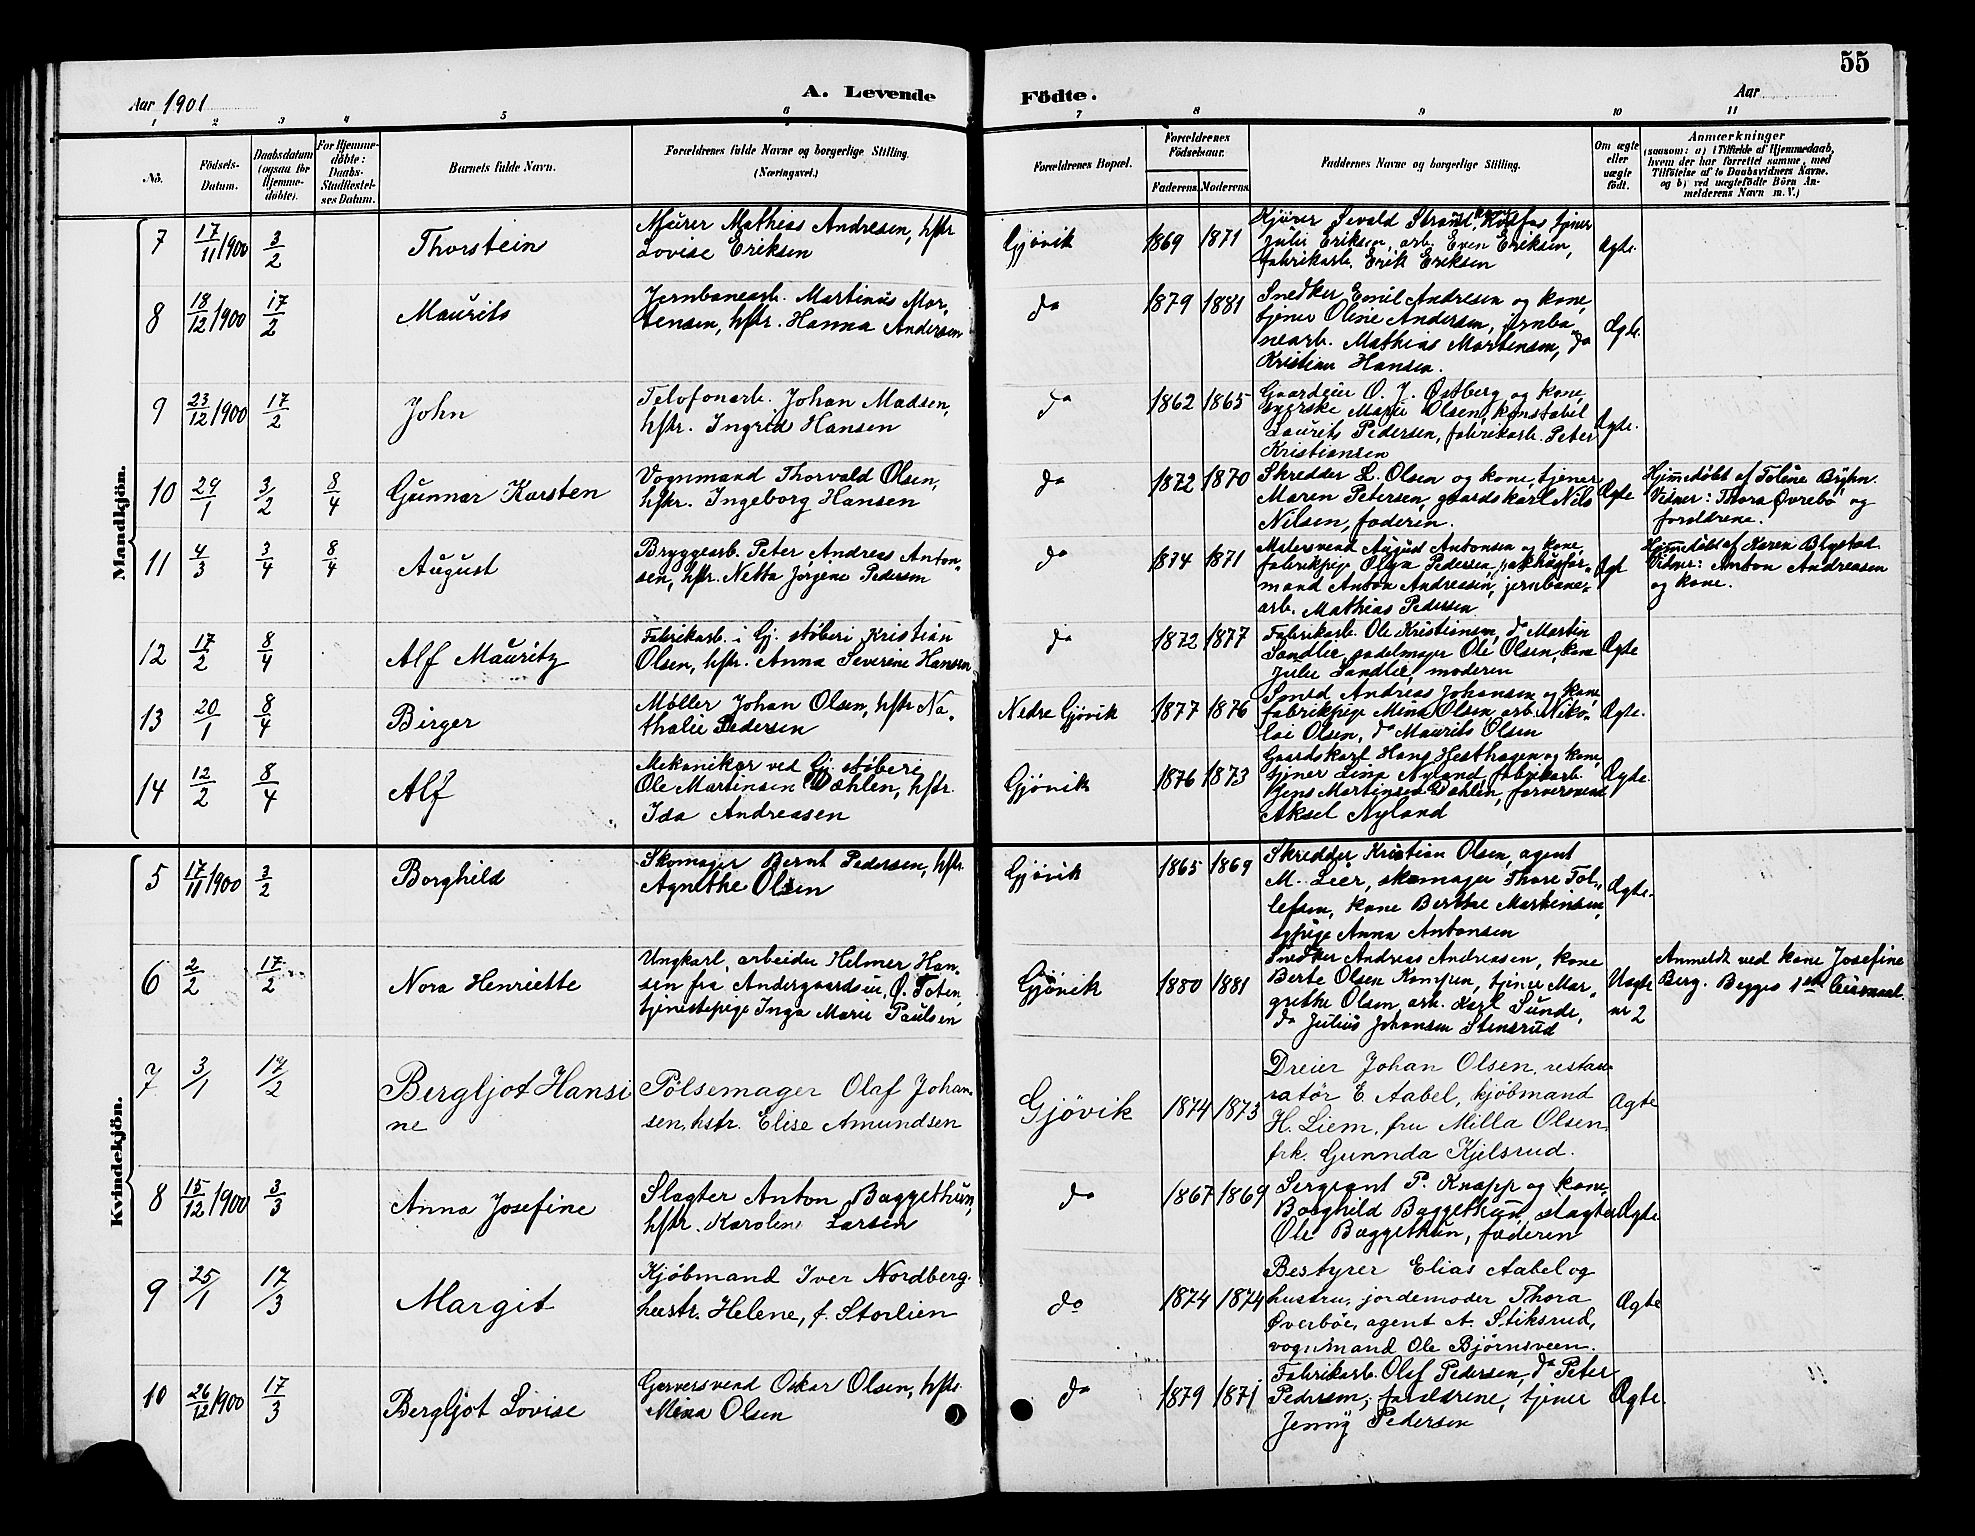 55
Aar 1901
A. Levende Födte.
Aar
1 2 3 4 5 6 7 8 9 10 11
No.
Födsels-Datum.
Daabsdatum (ogsaa for Hjemme-døbte).
For Hjemme-døbte: Daabs-Stadfæstel-ses Datum.
Barnets fulde Navn.
Forældrenes fulde Navne og borgerlige Stilling. (Næringsvei.)
Forældrenes Bopæl.
Forældrenes Födselsaar.
Faderens. Moderens.
Faddernes Navne og borgerlige Stilling.
Om ægte eller uægte født.
Anmærkninger
(saasom: a) i Tilfælde af Hjemmedaab, hvem der har forrettet samme, med Tilföielse af to Daabsvidners Navne, og b) ved uægtefödte Börn Anmelderens Navn m. V.)
Mandkjön.
7 17/11 1900 3/2 Thorstein
Murer Mathias Andresen, hstr.
Lovise Eriksen
Gjøvik 1869 1871
Kjører Sevald Strand, tjener
Julie Eriksen, arb. Even Eriksen,
fabrikarb. Erik Eriksen
Ægte.
8 18/12 1900 17/2 Maurits
Jernbanearb. Martinus Mor-
tensen, hstr. Hanna Andersen
do 1879 1881
Snedker Emil Andresen og kone,
tjener Oline Andersen, jernba-
nearb. Mathias Mortensen, do
Kristian Hansen.
Ægte.
9 23/12 1900 17/2 John
Telefonarb. Johan Madsen,
hstr. Ingrid Hansen
do 1862 1865
Gaardeier O. J. Østberg og kone,
syerske Marie Olsen, konstabel
Laurits Pedersen, fabrikarb. Peter
Kristiansen
Ægte.
10 29/1 3/2 8/4 Gunnar Karsten
Vognmand Thorvald Olsen,
hstr. Ingeborg Hansen
do 1872 1870
Skredder L. Olsen og kone, tjener
Maren Petersen, gaardskarl Nils
Nilsen, faderen.
Ægte
Hjemmedøbt af Toline Bryhn.
Vidner: Thora Øvrebø og
forældrene.
11 4/3 3/4 8/4 August
Bryggearb. Peter Andreas Anton-
sen, hstr. Netta Jørgine Pedersen
do 1874 1871
Malersvend August Antonsen og kone,
fabrikpige Olga Pedersen, pakhusfor-
mand Anton Andreassen, jernbane-
arb. Mathias Pedersen
Ægt
Hjemmedøbt af Karen Blystad.
Vidner: Anton Andreasen
og kone.
12 17/2 8/4 Alf Mauritz
Fabrikarb. i Gj. støberi Kristian
Olsen, hstr. Anna Severine Hansen
do 1872 1877
Fabrikarb. Ole Kristiansen, do Martin
Sandlie, sadelmager Ole Olsen, kone
Julie Sandlie, moderen
Ægte
13 20/1 8/4 Birger
Møller Johan Olsen, hstr. Na-
thalie Pedersen
Nedre Gjøvik 1877 1876
Smed Andreas Johansen og kone,
fabrikpige Mina Olsen, arb. Niko-
lai Olsen, do Maurits Olsen
Ægte.
14 12/2 8/4 Alf
Mekaniker ved Gj. støberi
Ole Martinsen Dæhlen, hstr.
Ida Andreasen
Gjøvik 1876 1873
Gaardskarl Hans Hesthagen og kone,
tjener Lina Nyland, fabrikarb.
Jens Martinsen Dæhlen, farversvend
Aksel Nyland
Ægte.
Kvindekjön.
5 17/11 1900 3/2 Borghild
Skomager Bernt Pedersen, hstr.
Agnethe Olsen
Gjøvik 1865 1869
Skredder Kristian Olsen, agent
M. Lier, skomager Thore Tol-
lefsen, kone Berthe Martinsen,
sypige Anna Antonsen
Ægte.
6 2/2 17/2 Nora Henriette
Ungkarl, arbeider Helmer Han-
sen fra Andergaardseie, Ø. Toten,
tjenestepige Inga Marie Paulsen
Gjøvik 1880 1881
Snedker Andreas Andreasen, kone
Berte Olsen Kampen, tjener Mar-
grethe Olsen, arb. Karl Sunde,
do Julius Johansen Stensrud
Uægte
nr 2
Anmeldt ved kone Josefine
Berg. Begges 1ste Leiermaal.
7 3/1 17/2 Bergljot Hansi
ne
Pölsemager Olaf Johan-
sen, hstr. Elise Amundsen
Gjövik 1874 1873
Dreier Johan Olsen, restau-
ratør E. Aabel, kjöbmand
H. Liem, fru Milla Olsen,
frk. Gunnda Kjelsrud.
Ægte
8 15/12 1900 3/3 Anna Josefine
Slagter Anton Baggethun,
hstr. Karoline Larsen
do 1867 1869
Sergeant P. Knapp og kone,
Borghild Baggethun, slagter
Ole Baggethun, faderen
Ægte.
9 25/1 17/3 Margit
Kjöbmand Iver Nordberg.
hustr. Helene, f. Storlien
do 1874 1874
Bestyrer Elias Aabel og
hustru, jordemoder Thora
Øverböe, agent A. Stiksrud,
vognmand Ole Bjørnsveen.
Ægte
10 26/12 1900 17/3 Bergljot Lovise
Garversvend Oskar Olsen, hstr.
Mina Olsen
do 1879 1871
Fabrikarb. Olaf Pedersen, do Peter
Pedersen, forældrene, tjener
Jenny Pedersen
Ægte.